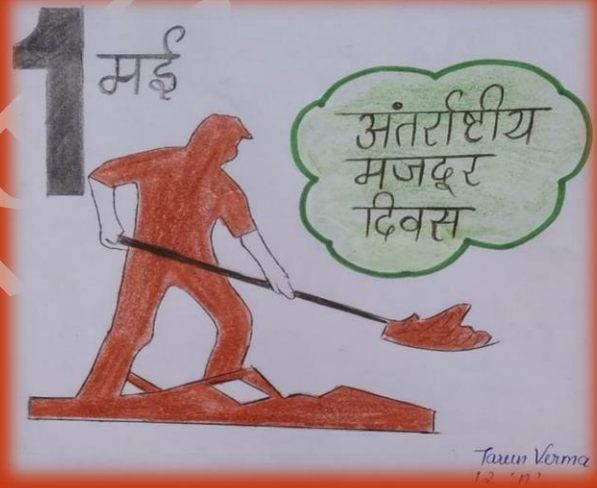 1 मई
अंतर्राष्टीय
मजदूर
दिवस
Tarun Verma